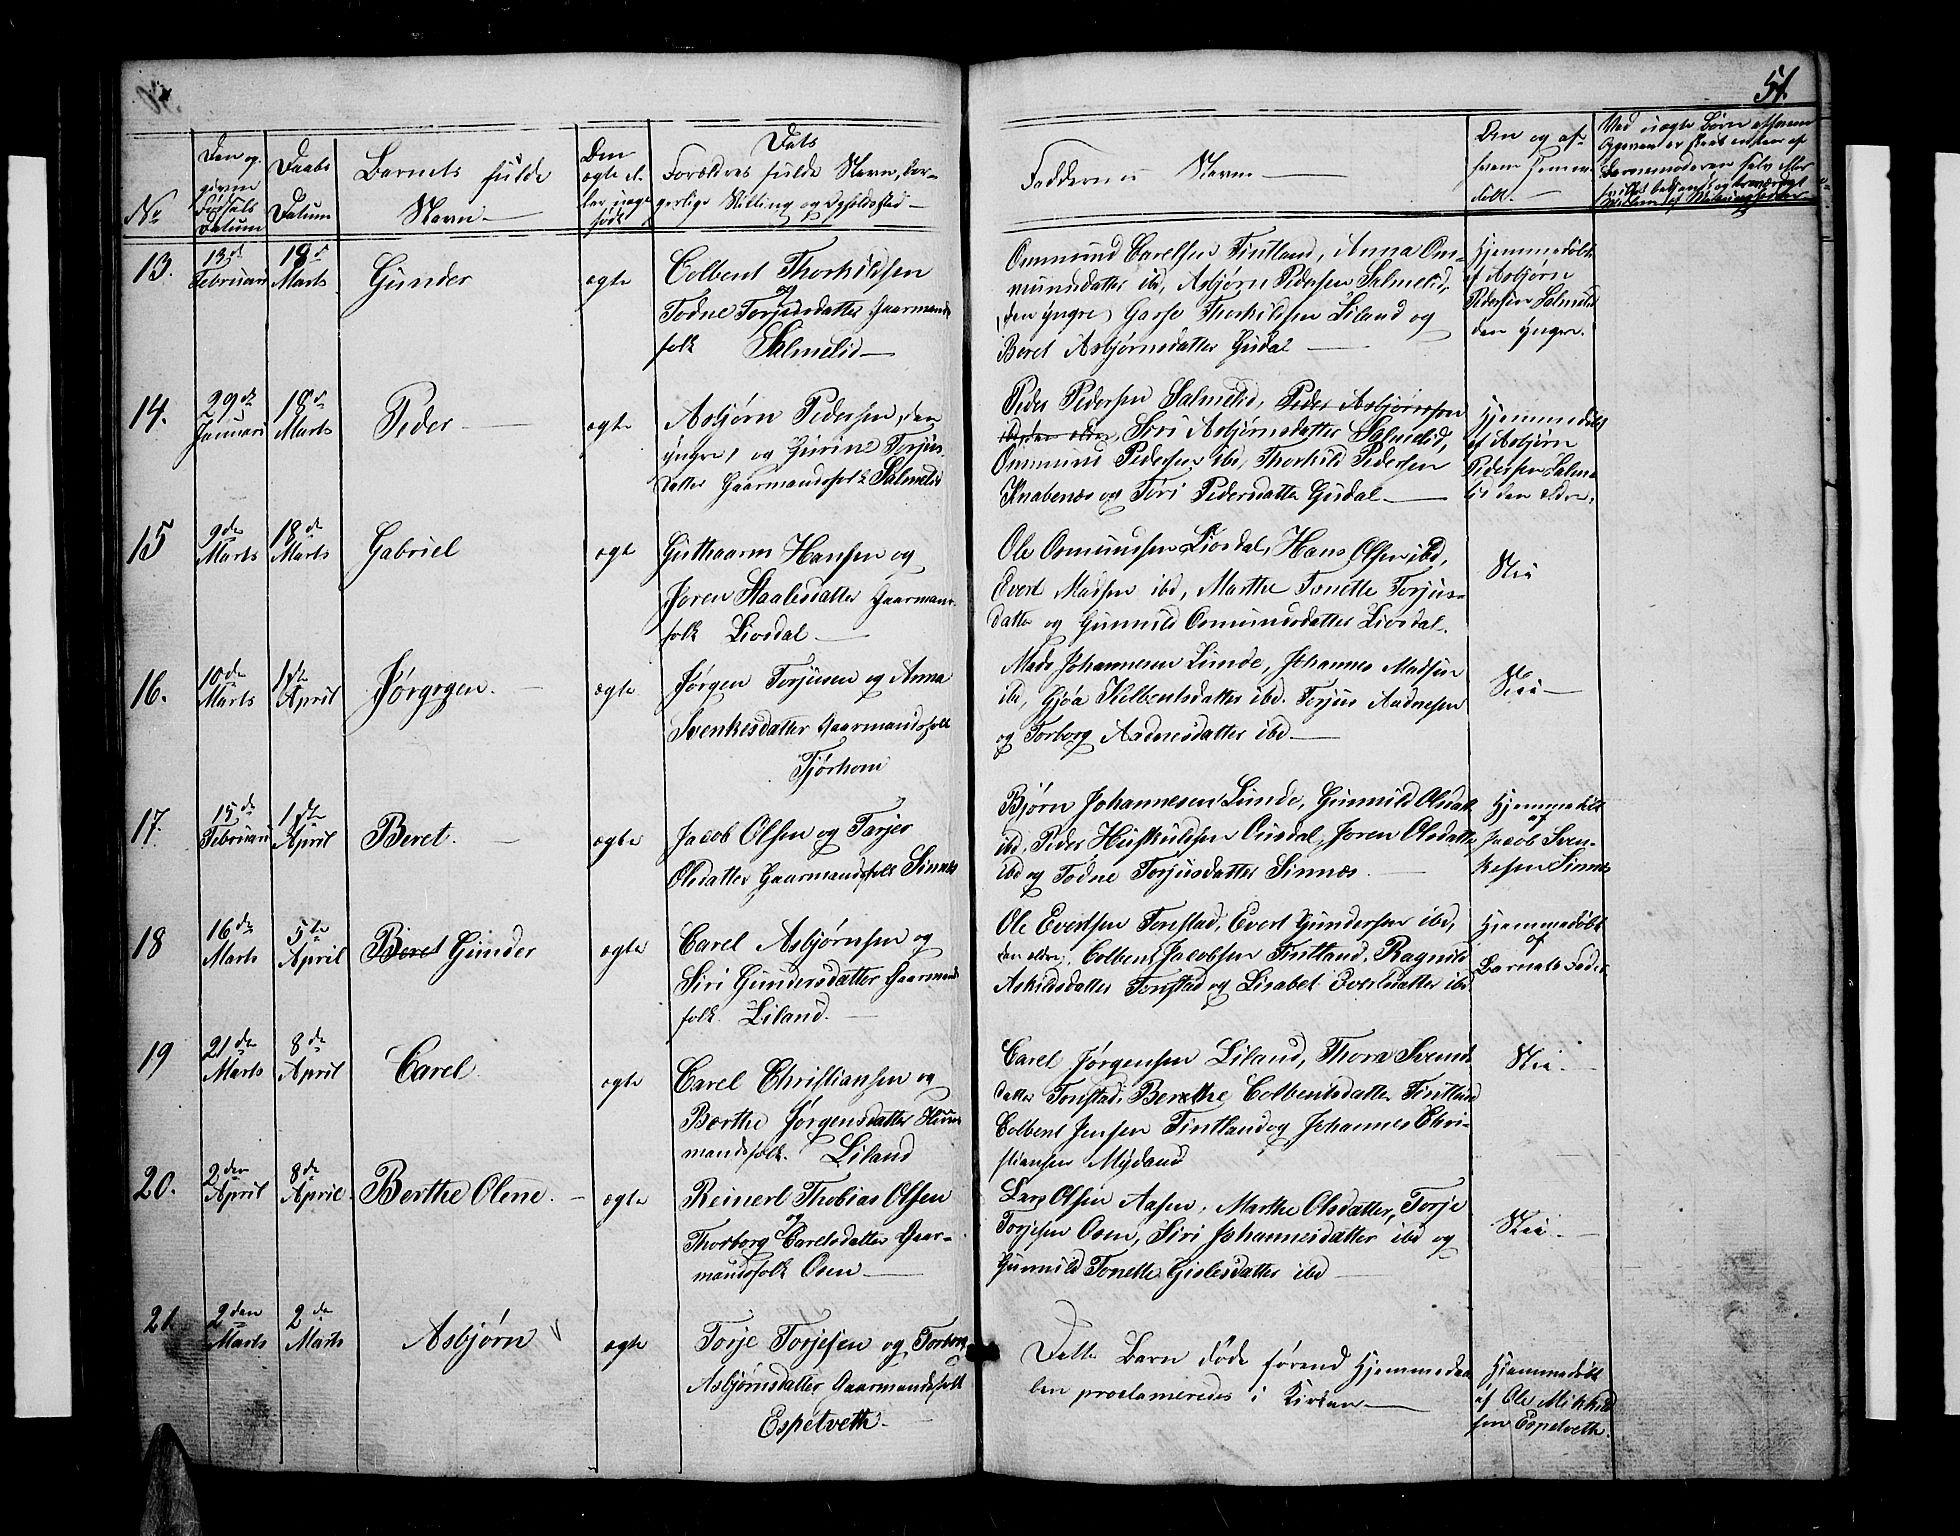 51.
No
Den og.
givne
Födsels
Datum
Daabs
Datum
Barnets fulde
Navn
Den
ægte el.
ler uægte
födt
Dets
Forældres fulde Navn, bor-
gerlige Stilling og Opholdsted
Faddernes Navn
Den og af
hvem hjemme
döbt.
13.
13de
Februari
18de
Marts
Gunder
ægte
Colbent Thorkildsen
og
Todne Torjusdatter Gaarmands
folk Salmelid
Ommund Carelsen Tintland, Anna Om-
mundsdatter ibd, Asbjørn Pedersen Salmelid,
(den yngre) Garse Thorkildsen Liland og
Beret Asbjørnsdatter Gusdal
Hjemmedöbt
af Asbjørn
Pedersen Salmelid
den yngre.
14.
29de
Januari
18de
Marts
Peder
ægte
Asbjørn Pedersen, den
yngre, og Gurine Torjus
datter Gaarmandsfolk Salmelid
Peder Pedersen Salmelid, Peder Asbjørnsen
ibd den eldre, Siri Asbjørnsdatter Salmelid,
Ommund Pedersen ibd, Thorkild Pedersen
Knabenæs og Töri Pedersdatter Gusdal
Hjemmedöbt
af Asbjørn
Pedersen Salme
lid den eldre.
15
9de
Marts
18de
Marts
Gabriel
ægte
Guthaarm Hansen og
Joren Staalesdatter Gaarmans-
folk Liosdal
Ole Osmundsen Liosdal, Hans Olsen ibd,
Evert Madsen ibd, Marthe Tonette Torjus-
datter og Gunnild Osmundsdatter Liosdal.
Nei
16.
10de
Marts
1ste
April
Jørgrgen.
ægte
Jørgen Torjusen og Anna
Svenkesdatter Gaarmandsfolk
Tjørhom
Mads Johannesen Lunde, Johannes Madsen
ibd, Gjøa Kelbentsdatter ibd. Torjus Aadnesen
og Torborg Aadnesdatter ibd
Nei
17.
15de
Februari
1ste
April
Beret.
ægte
Jacob Olsen og Tarjer
Olsdatter Gaarmandsfolk Sinnes
Bjørn Johannesen Lunde, Gunnild Olsdatt
ibd, Peder Huskuldsen Ousdal, Joren Olsdatter
ibd og Todne Torjusdatter Sinnæs.
Hjemmedöbt
af
Jacob Sven-
kesen Sinnes
18
16de
Marts
5te
April
Beret Gunder
ægte
Carel Asbjørnsen og
Siri Gundersdatter Gaarmands
folk Liland.
Ole Evertsen Tonstad, Evert Gundersen ibd,
den eldre, Colbent Jacobsen Tintland, Ragnild
Askildsdatter Tonstad og Lisabet Evertsdatter ibd
Hjemmedöbt
af
Barnets Fader
19
21de
Marts
8de
April
Carel
ægte
Carel Christiansen og
Berthe Jørgensdatter Huus
mandsfolk. Liland
Carel Jørgensen Liland, Thora Svends
datter Tonstad, Berethe Colbentsdatter Tintland
Colbent Jensen Tintland og Johannes Chri-
stiansen Mydland
Nei.
20.
2den
April
8de
April
Berthe Olene.
ægte
Reinert Thobias Olsen
og
Thorborg Carelsdatter Gaar-
mandsfolk Osen
Lars Olsen Aasen, Marthe Olsdatter, Torje
Torjesen Osen, Siri Johannesdatter ibd og
Gunnild Tonette Gislesdatter ibd
Nei.
21.
2den
Marts
2de
Marts
Asbjørn
ægte
Torje Torjesen og Torborg
Asbjørnsdatter Gaarmandsfolk
Espetveth
Dette Barn døde førend Hjemmedaa
ben proclameredes i Kirken
Hjemmedöbt
af Ole Mikkel
sen Espetveth.